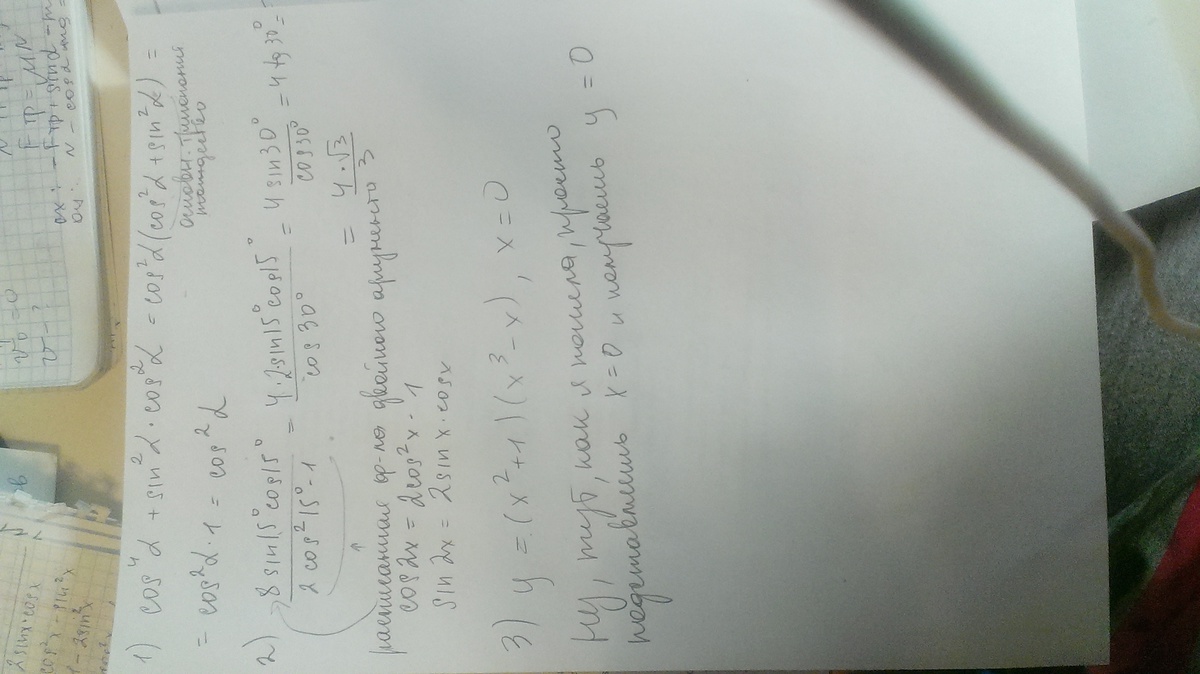 1) cos⁴α + sin²α · cos²α = cos²α(cos²α + sin²α) =
основн. тригоном.
тождество
= cos²α · 1 = cos²α
2) 8 sin15° cos15° / 2cos²15° - 1 = 4·2·sin15° cos15° / cos30° = 4 sin30° / cos30° = 4 tg 30° =
= 4·√3 / 3
расписанная ф-ла двойного аргумента
cos2x = 2cos²x · 1
sin2x = 2sinx·cosx
3) y = (x²+1)(x³-x), x=0
Ну, тут, как я поняла, просто
подставляешь x=0 и получаешь y=0
2sinx·cosx
cos²x - sin²x
1 - 2sin²x
v₀ = 0
v - ?
Fтр = μN
ох: -Fтр + sinα
оу: N - cosα mg =